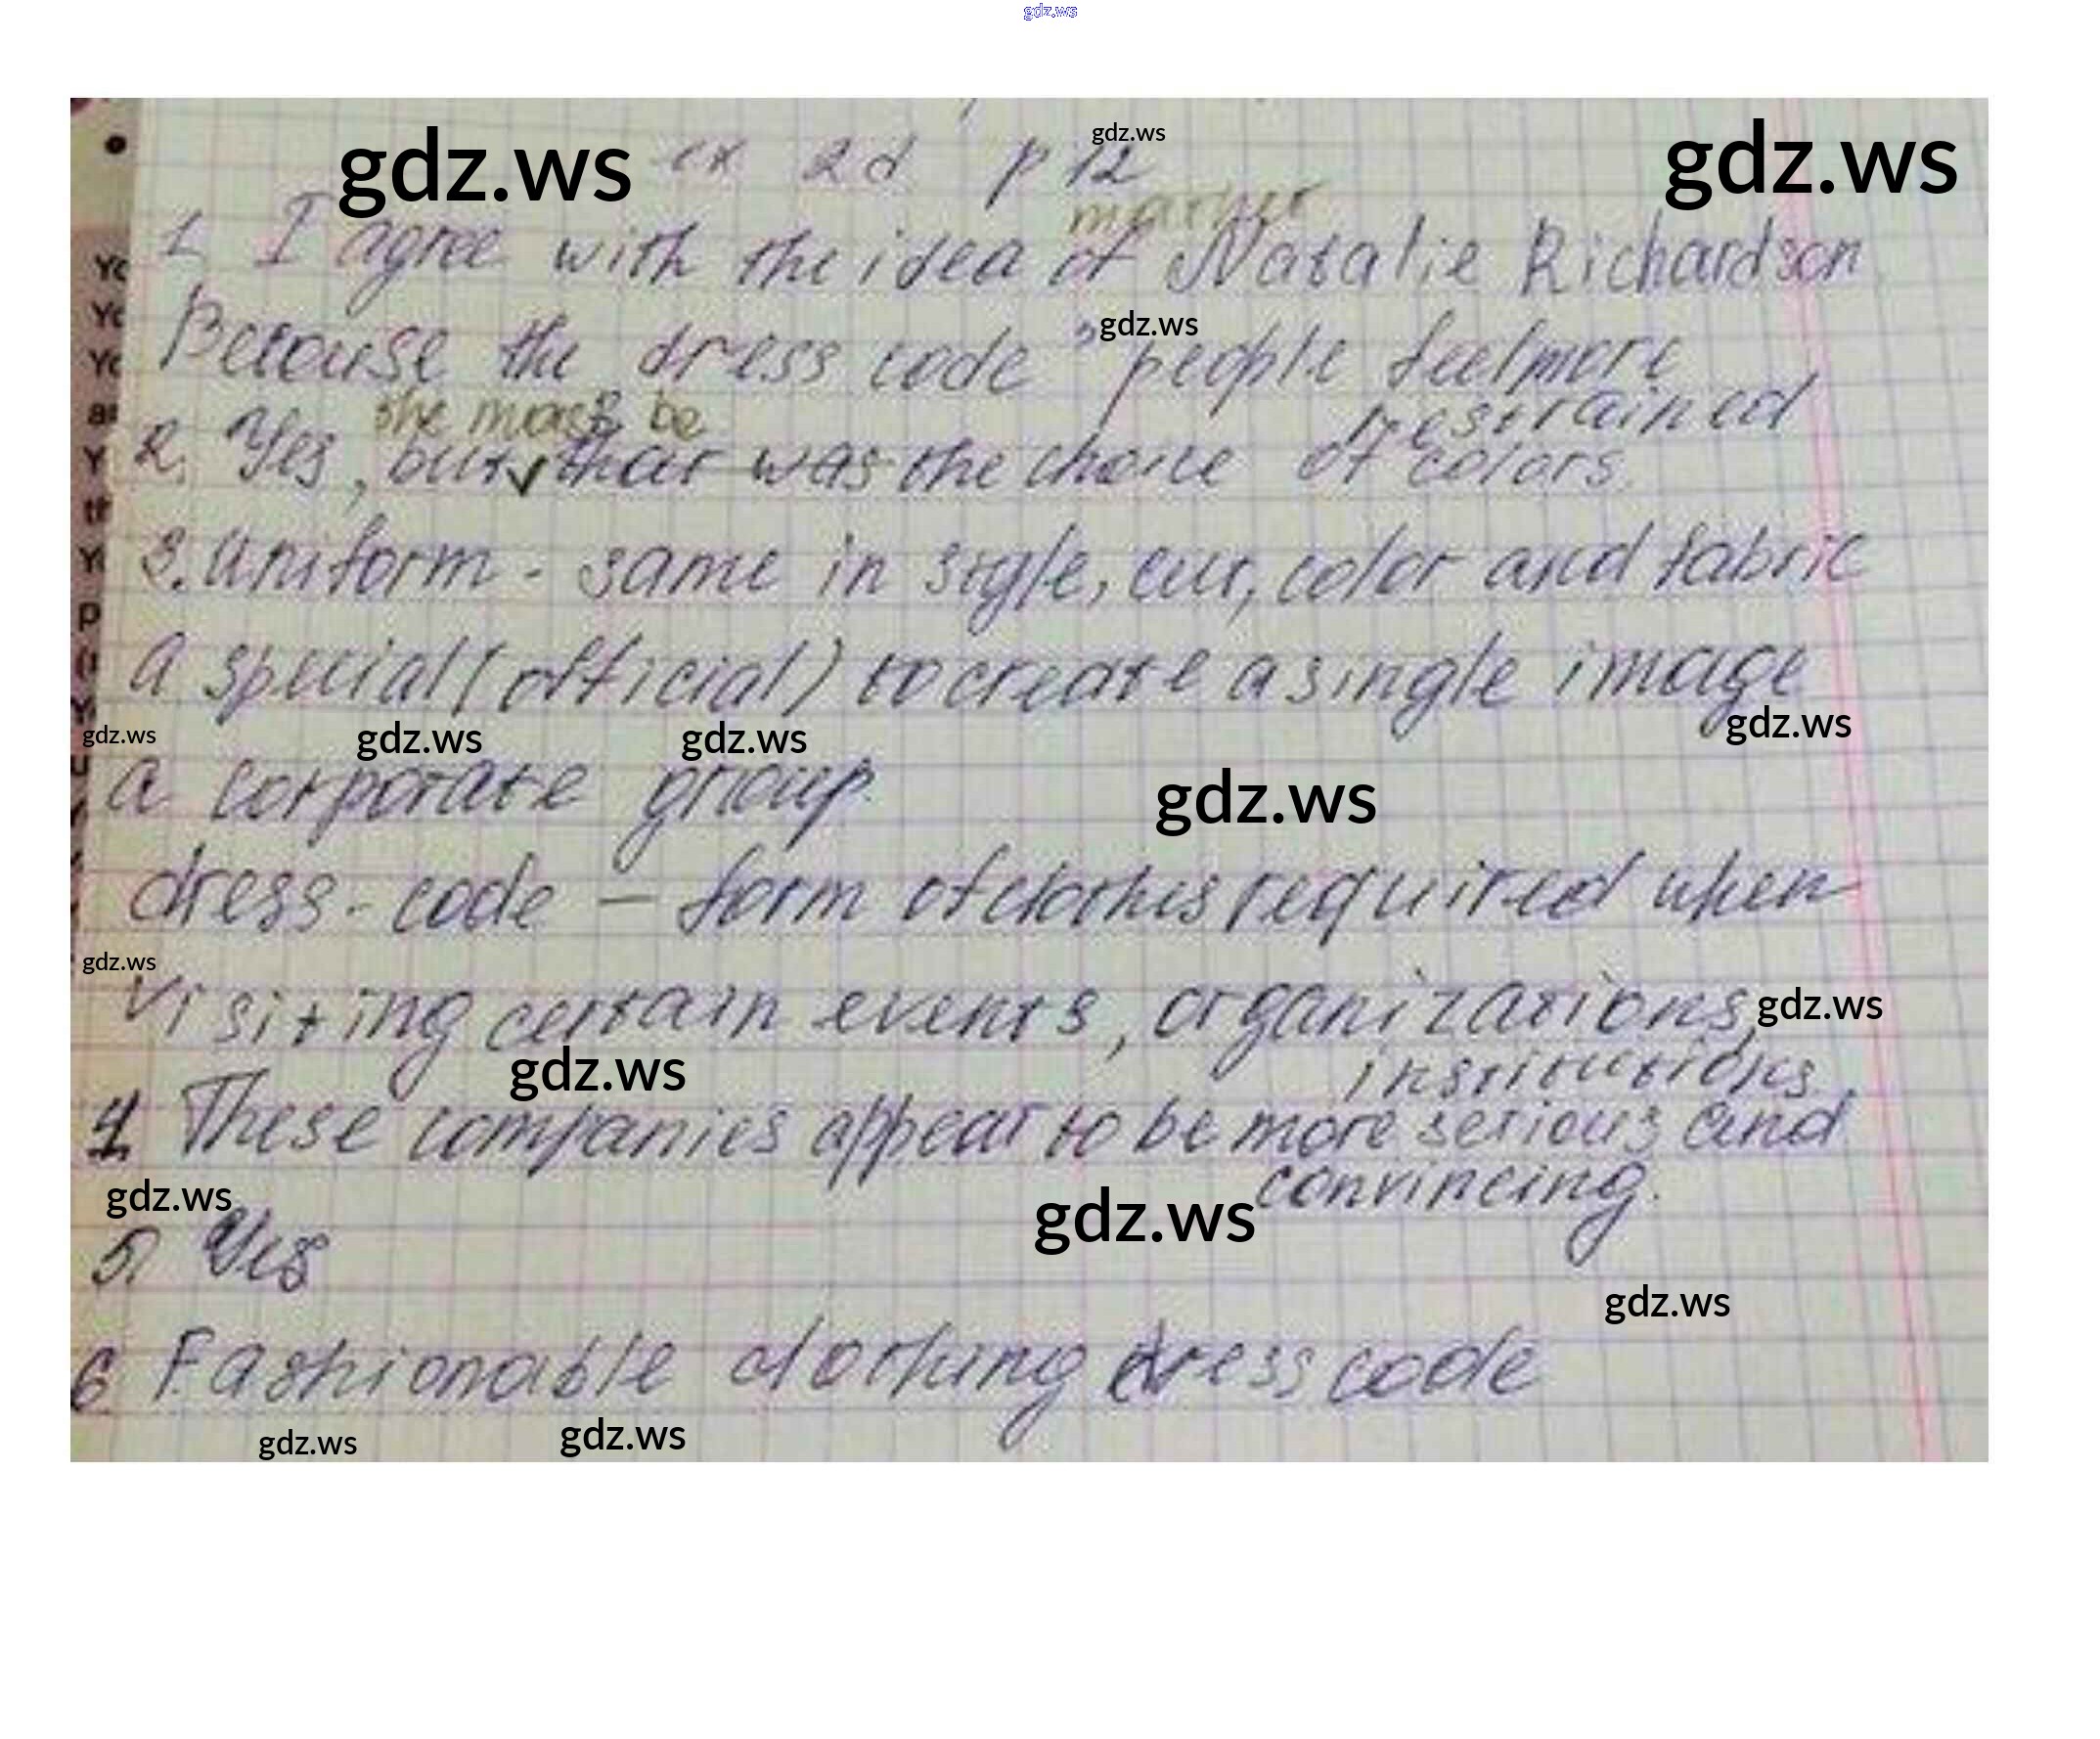 gdz.ws
gdz.ws ex 2d p 12 gdz.ws gdz.ws
1. I agree with the idea of Natalie Richardson
gdz.ws
Because the dress code people feel more
restrained
she must be
2. Yes, but that was the choice of colors.
3. Uniform - same in style, cut, color and fabric
a special (official) to create a single image
gdz.ws gdz.ws gdz.ws gdz.ws
a corporate group. gdz.ws
dress-code – form of clothes required when
gdz.ws
visiting certain events, organizations, gdz.ws
institutions
gdz.ws
4. These companies appear to be more serious and
convincing.
gdz.ws gdz.ws
5. Yes
gdz.ws
6 Fashionable clothing dress code
gdz.ws gdz.ws